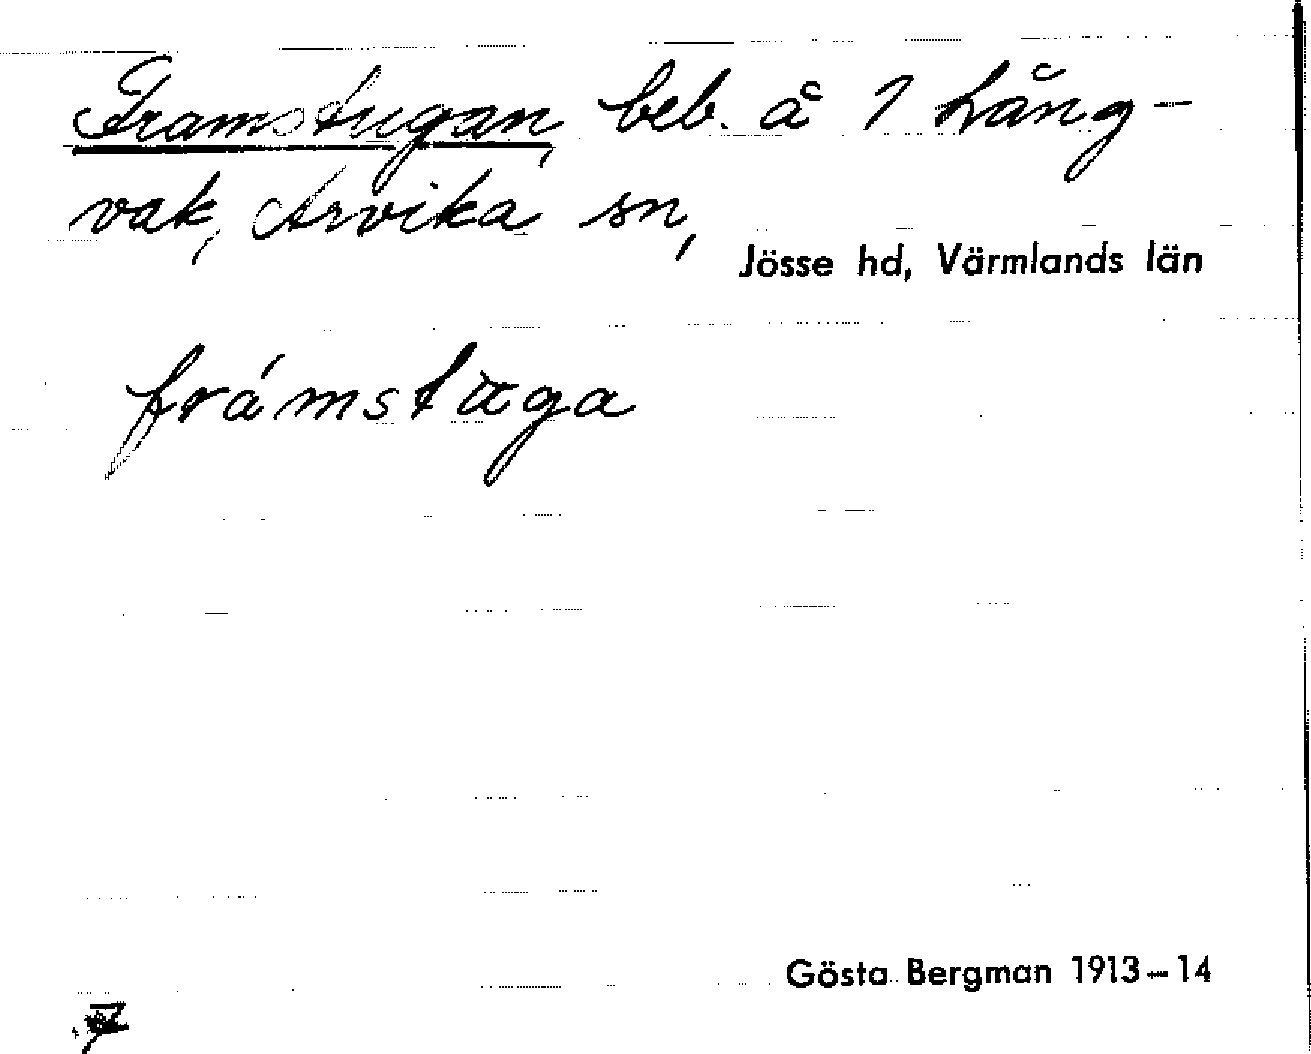 Framstugan, beb. å 1 Lång-
vak, Arvika sn,
Jösse hd, Värmlands län
frámstuga
Gösta Bergman 1913–14